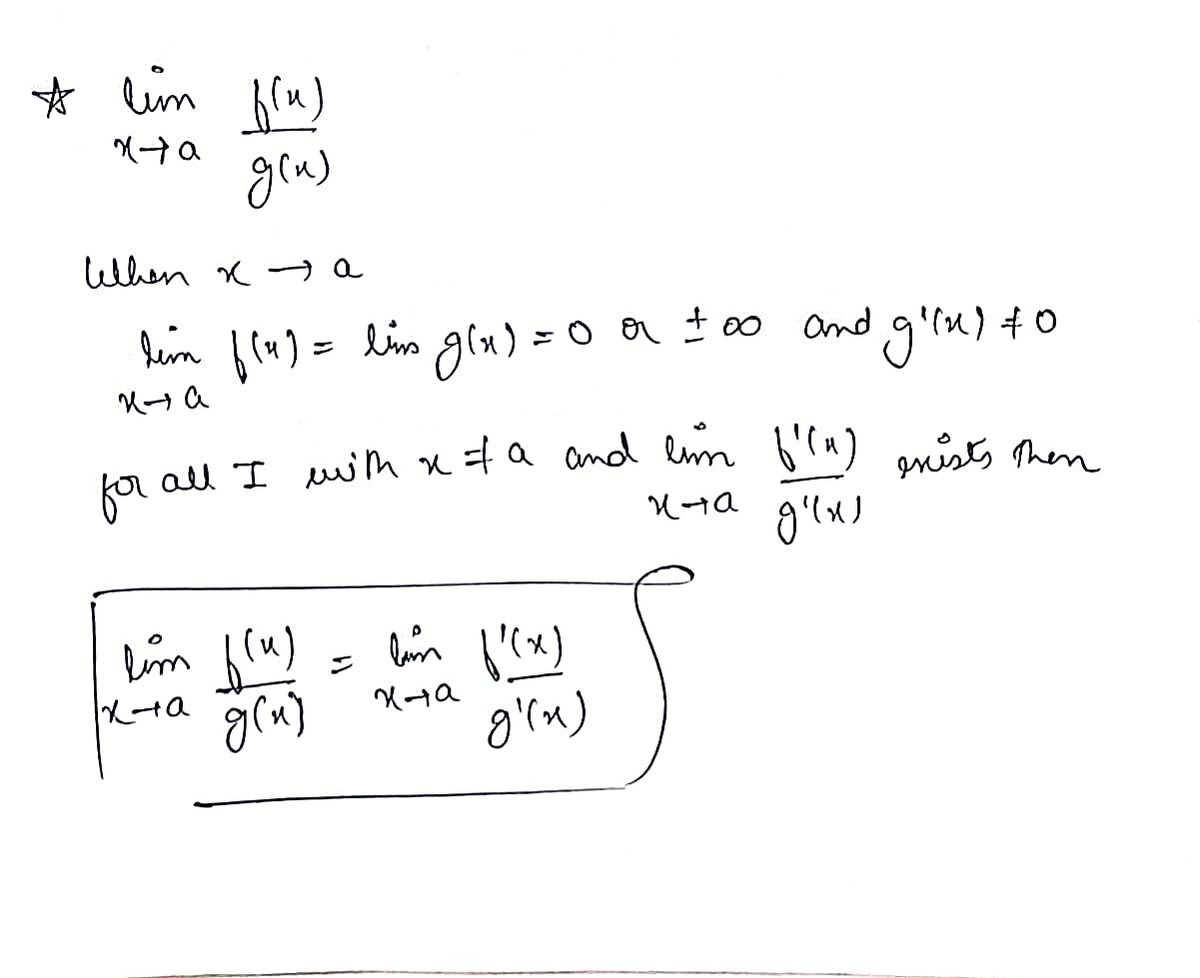 ☆ lim x→a f(x)/g(x)
When x → a
lim x→a f(x) = lim g(x) = 0 or ± ∞ and g'(x) ≠ 0
for all I with x ≠ a and lim x→a f'(x)/g'(x) exists then
lim x→a f(x)/g(x) = lim x→a f'(x)/g'(x)